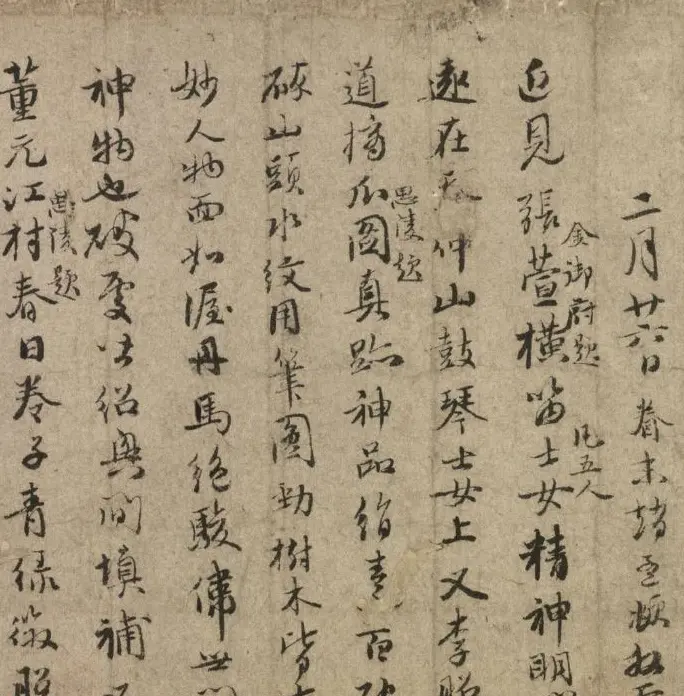 二月廿六日眷末堵
近見張萱橫笛士女精神明
金御府題
凡五人
遠在 仲山鼓琴士女上又李
道摘瓜圖真跡神品絹素百破
思陵題
碎山頭水紋用筆圓勁樹木皆
妙人物面如渥丹馬絕駿偉世間
神物也破處皆紹興間填補
董元江村春日卷子青綠微脫
思陵題